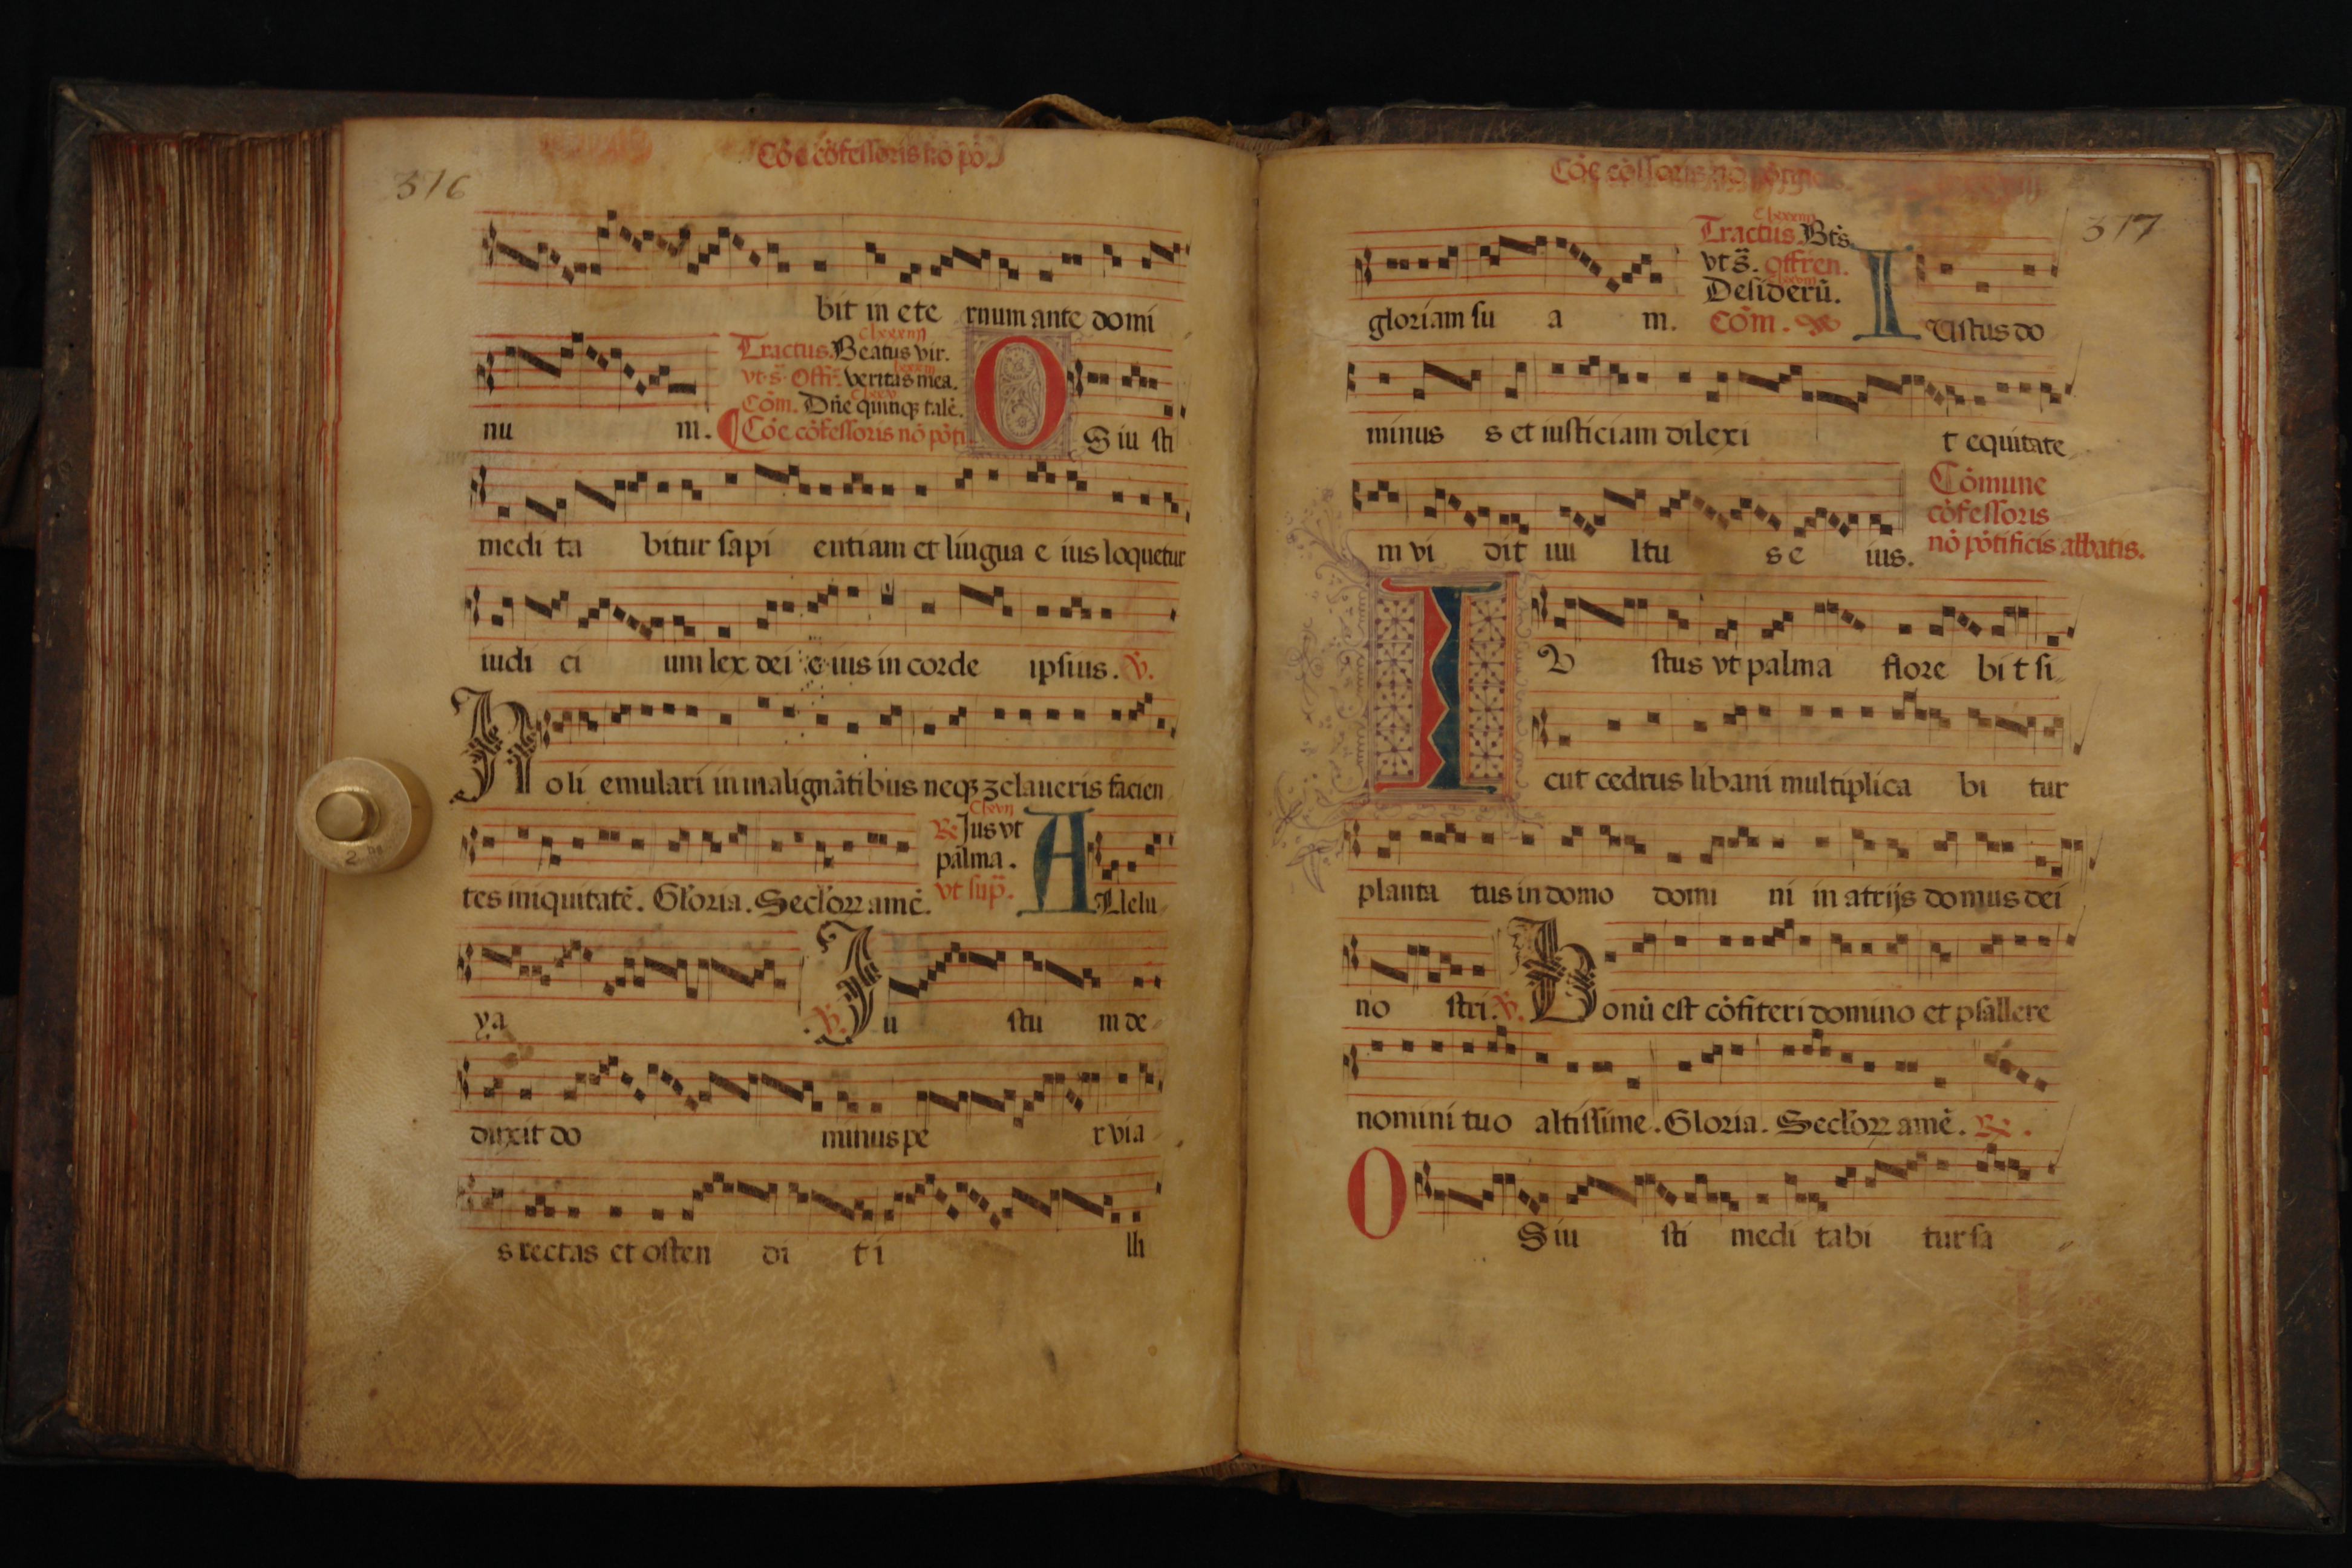 Cōe cōfessoris nō pō.
316
bit in ete rnum ante domi
clxxxiiij
Tractus. Beatus vir.
vt s̄. Offr̄. veritas mea.
Cōm. Dn̄e quinqꝫ talē.
nu m. Cōe cōfessoris nō pōti
O S iu sti
medi ta bitur sapi entiam et lingua e ius loquetur
iudi ci um lex dei e ius in corde ipsius. ℣.
N oli emulari in malignātibus neqꝫ zelaueris facien
tes iniquitatē. Gloria. Secloꝝ amē.
℟ Jus vt
palma.
vt sup̄.
A Llelu
ya ℣. Ju stu m de
duxit do minus pe r via
s rectas et osten di t i lli
317
gloriam su a m.
Tractus. Bt̄s.
vt s̄. offren.
Desiderū.
Cōm.
I Ustus do
minus s et iusticiam dilexi t equitate
m vi dit uu ltu s e ius.
Cōmune
cōfessoris
nō pōtificis abbatis.
I U stus vt palma flore bi t si
cut cedrus libani multiplica bi tur
planta tus in domo domi ni in atrijs domus dei
no stri. ℣. Bonū est cōfiteri domino et psallere
nomini tuo altissime. Gloria. Secloꝝ amē. ℟.
O S iu sti medi tabi tur sa